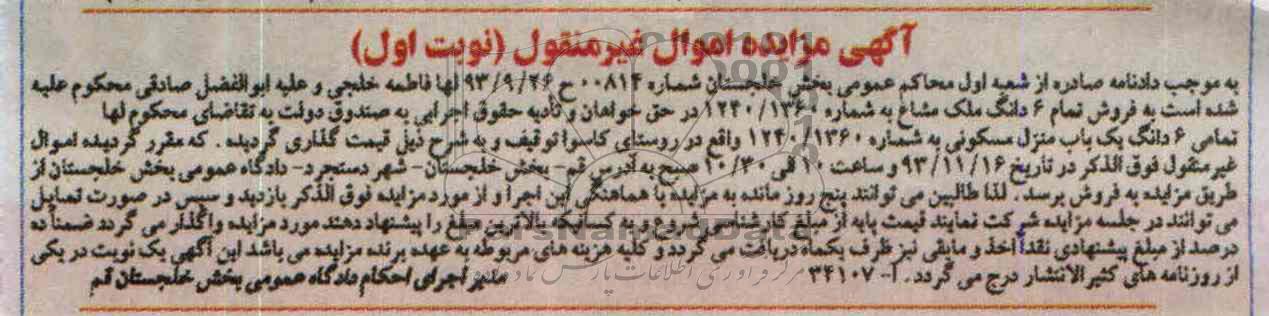 آگهی مزایده اموال غیرمنقول (نوبت اول)
به موجب دادنامه صادره از شعبه اول محاکم عمومی بخش خلجستان شماره ۰۰۸۱۴ ح ۹۳/۹/۲۶ لها فاطمه خلجی و علیه ابوالفضل صادقی محکوم علیه
شده است به فروش تمام ۶ دانگ ملک مشاع به شماره ۱۲۴۰/۱۳۶۰ در حق خواهان و تأدیه حقوق اجرایی به صندوق دولت به تقاضای محکوم لها
تمامی ۶ دانگ یک باب منزل مسکونی به شماره ۱۲۴۰/۱۳۶۰ واقع در روستای کاسوا توقیف و به شرح ذیل قیمت گذاری گردیده . که مقرر گردیده اموال
غیرمنقول فوق الذکر در تاریخ ۹۳/۱۱/۱۶ و ساعت ۱۰ الی ۱۰/۳۰ صبح به آدرس قم- بخش خلجستان- شهر دستجرد- دادگاه عمومی بخش خلجستان از
طریق مزایده به فروش برسد . لذا طالبین می توانند پنج روز مانده به مزایده با هماهنگی این اجرا و از مورد مزایده فوق الذکر بازدید و سپس در صورت تمایل
می توانند در جلسه مزایده شرکت نمایند قیمت پایه از مبلغ کارشناسی شروع و به کسانیکه بالاترین مبلغ را پیشنهاد دهند مورد مزایده واگذار می گردد ضمناً ده
درصد از مبلغ پیشنهادی نقداً اخذ و مابقی نیز ظرف یکماه دریافت می گردد و کلیه هزینه های مربوطه به عهده برنده مزایده می باشد این آگهی یک نوبت در یکی
از روزنامه های کثیرالانتشار درج می گردد . آ- ۳۴۱۰۷
مدیر اجرای احکام دادگاه عمومی بخش خلجستان قم
ParsNamadData
مرکز فرآوری اطلاعات پارس نماد داده ها